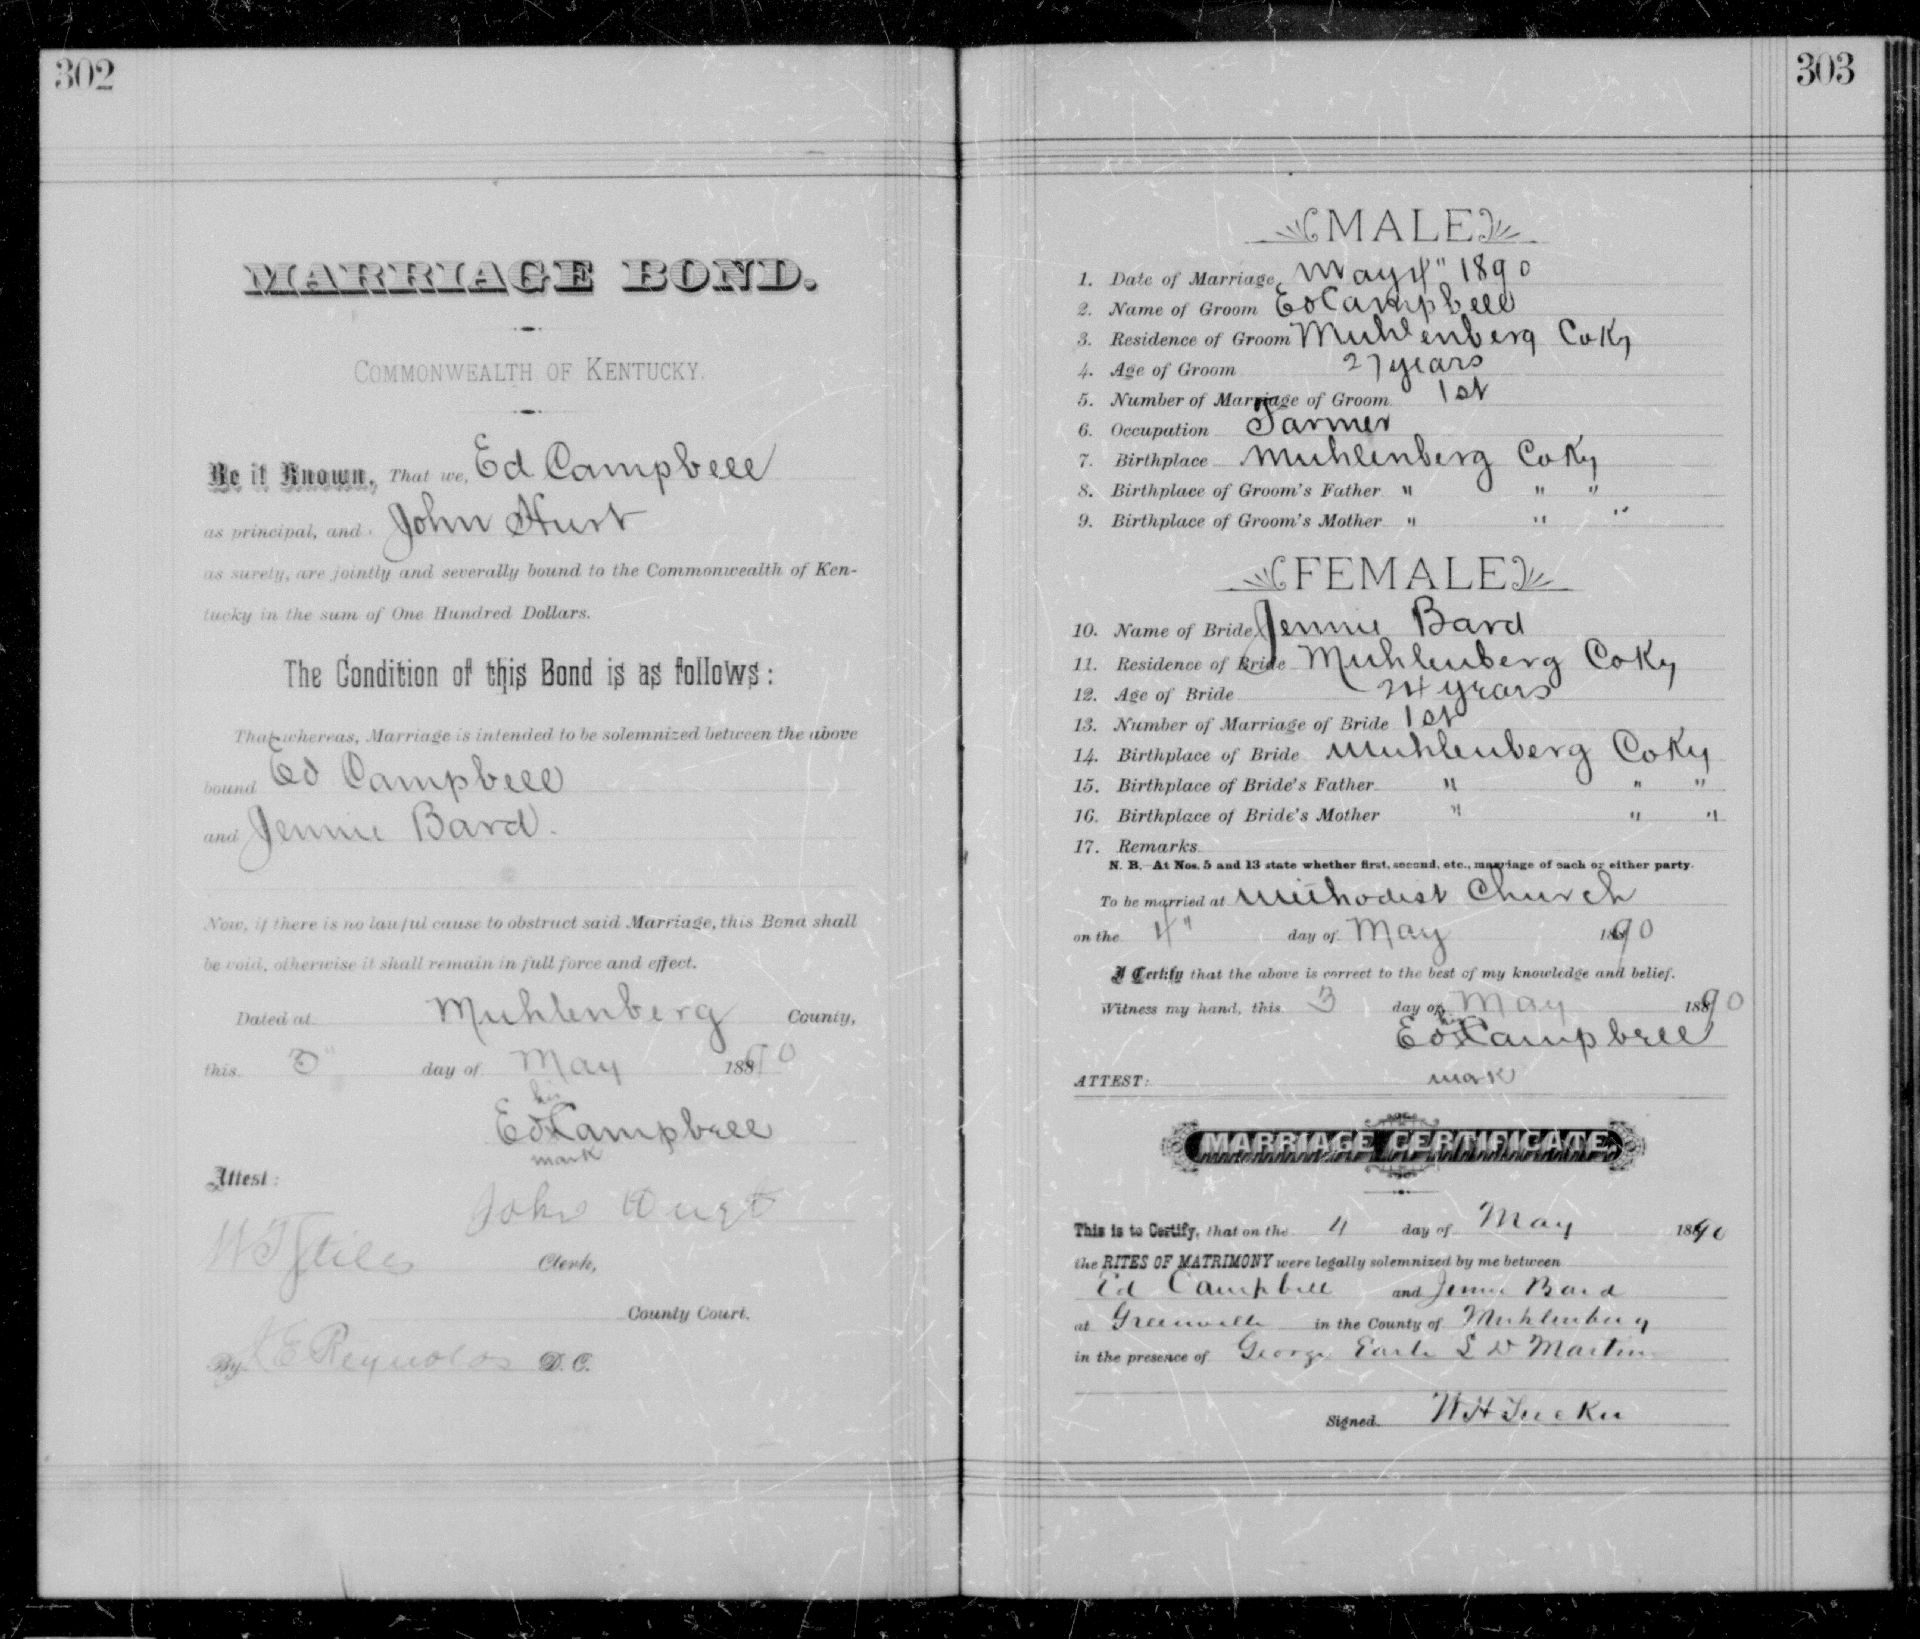 302
MARRIAGE BOND.
COMMONWEALTH OF KENTUCKY.
Be it Known, That we, Ed Campbell
as principal, and John Hurt
as surety, are jointly and severally bound to the Commonwealth of Ken-
tucky in the sum of One Hundred Dollars.
The Condition of this Bond is as follows:
That whereas, Marriage is intended to be solemnized between the above
bound Ed Campbell
and Jennie Bard.
Now, if there is no lawful cause to obstruct said Marriage, this Bond shall
be void, otherwise it shall remain in full force and effect.
Dated at Muhlenberg County,
this 3" day of May 18890
his
Ed X Campbell
mark
Attest:
John Hurt
W T Stiles Clerk,
County Court.
By E Reynolds D. C.
303
MALE
1. Date of Marriage May 4" 1890
2. Name of Groom Ed Campbell
3. Residence of Groom Muhlenberg Co Ky
4. Age of Groom 27 years
5. Number of Marriage of Groom 1st
6. Occupation Farmer
7. Birthplace Muhlenberg Co Ky
8. Birthplace of Groom's Father " " "
9. Birthplace of Groom's Mother " " "
FEMALE
10. Name of Bride Jennie Bard
11. Residence of Bride Muhlenberg Co Ky
12. Age of Bride 24 years
13. Number of Marriage of Bride 1st
14. Birthplace of Bride Muhlenberg Co Ky
15. Birthplace of Bride's Father " " "
16. Birthplace of Bride's Mother " " "
17. Remarks
N. B.—At Nos. 5 and 13 state whether first, second, etc., marriage of each or either party.
To be married at Methodist Church
on the 4" day of May 1890
I Certify that the above is correct to the best of my knowledge and belief.
Witness my hand, this 3 day of May 18890
his
Ed X Campbell
ATTEST: mark
MARRIAGE CERTIFICATE
This is to Certify, that on the 4 day of May 1890
the RITES OF MATRIMONY were legally solemnized by me between
Ed Campbell and Jennie Bard
at Greenville in the County of Muhlenburg
in the presence of George Earle S D Martin
Signed W H Tucker